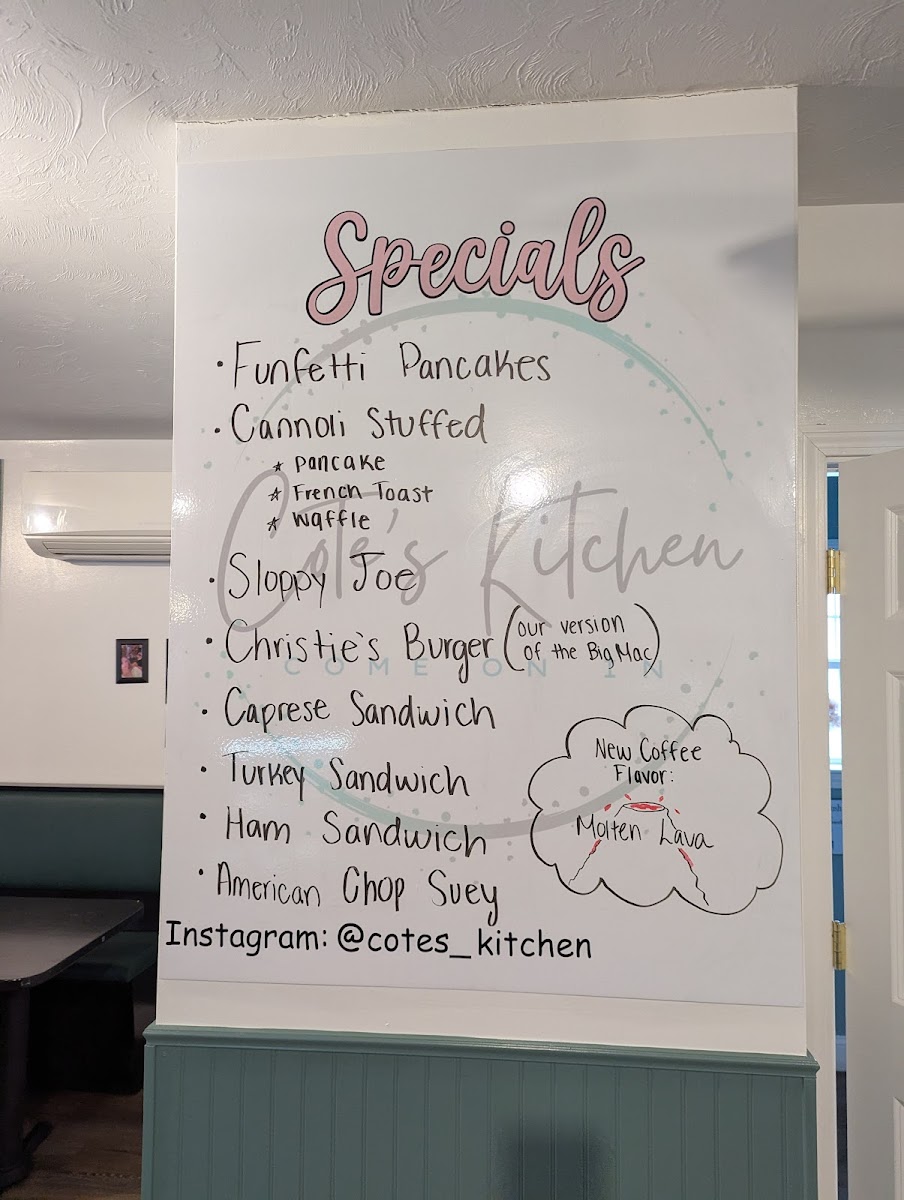 Specials
• Funfetti Pancakes
• Cannoli Stuffed
☆ Pancake
☆ French Toast
☆ Waffle
Cote's Kitchen
• Sloppy Joe
• Christie's Burger (our version of the Big Mac)
COME ON IN
• Caprese Sandwich
• Turkey Sandwich
• Ham Sandwich
• American Chop Suey
New Coffee
Flavor:
Molten Lava
Instagram: @cotes_kitchen